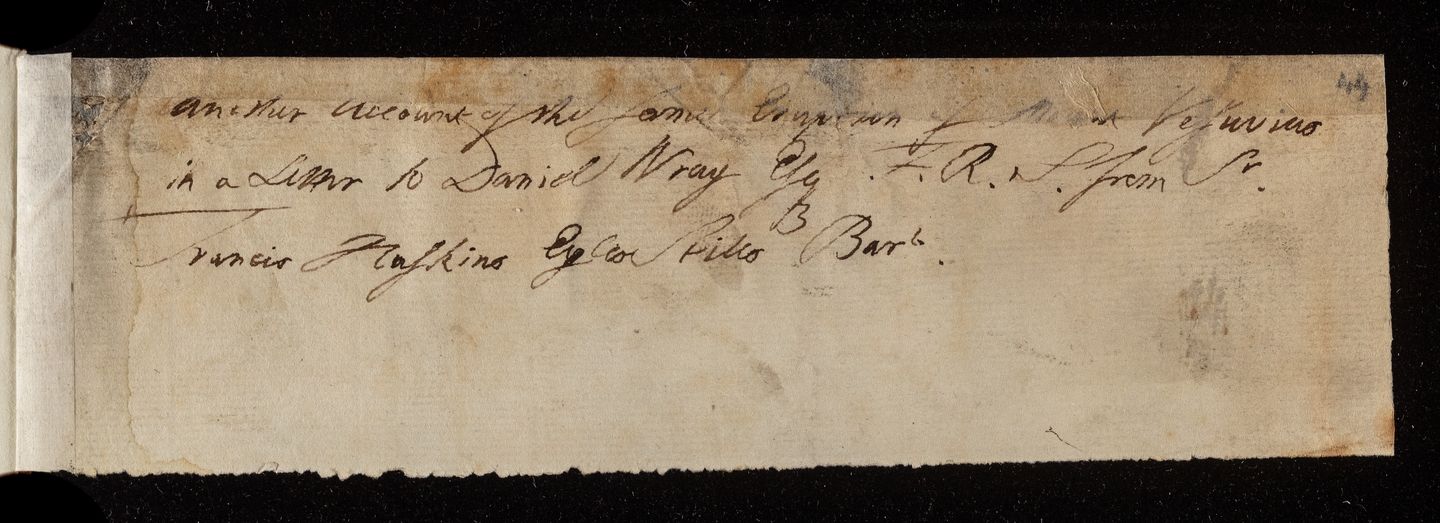 44
another account of the same Eruption of Mount Vesuvius
in a Letter to Daniel Wray Esq F. R. S. from Sr.
Francis Haskins Eyles Stiles Bart.
B